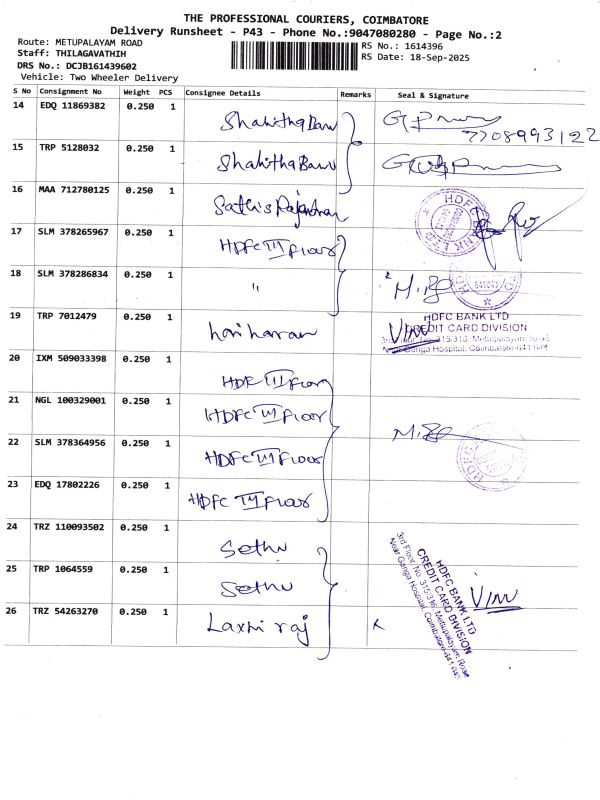 THE PROFESSIONAL COURIERS, COIMBATORE
Delivery Runsheet - P43 - Phone No.:9047080280 - Page No.:2
Route: METUPALAYAM ROAD RS No.: 1614396
Staff: THILAGAVATHIH RS Date: 18-Sep-2025
DRS No.: DCJB161439602
Vehicle: Two Wheeler Delivery
S No Consignment No Weight PCS Consignee Details Remarks Seal & Signature
14 EDQ 11869382 0.250 1
7708993122
15 TRP 5128032 0.250 1
16 MAA 712780125 0.250 1
HDFC BANK LTD
17 SLM 378265967 0.250 1 HDFC III Floor
18 SLM 378286834 0.250 1 "
19 TRP 7012479 0.250 1 hariharan
HDFC BANK LTD
CREDIT CARD DIVISION
3rd Floor, No. 315/316, Mettupalayam Road
Near Ganga Hospital, Coimbatore-641 043
20 IXM 509033398 0.250 1 HDF III Floor
21 NGL 100329001 0.250 1 HDFC III Floor
22 SLM 378364956 0.250 1 HDFC III Floor
23 EDQ 17802226 0.250 1 HDFC III Floor
24 TRZ 110093502 0.250 1 Sethu
25 TRP 1064559 0.250 1 Sethu
26 TRZ 54263270 0.250 1 Laxmi raj
HDFC BANK LTD
CREDIT CARD DIVISION
3rd Floor, No. 315/316, Mettupalayam Road
Near Ganga Hospital, Coimbatore-641 043